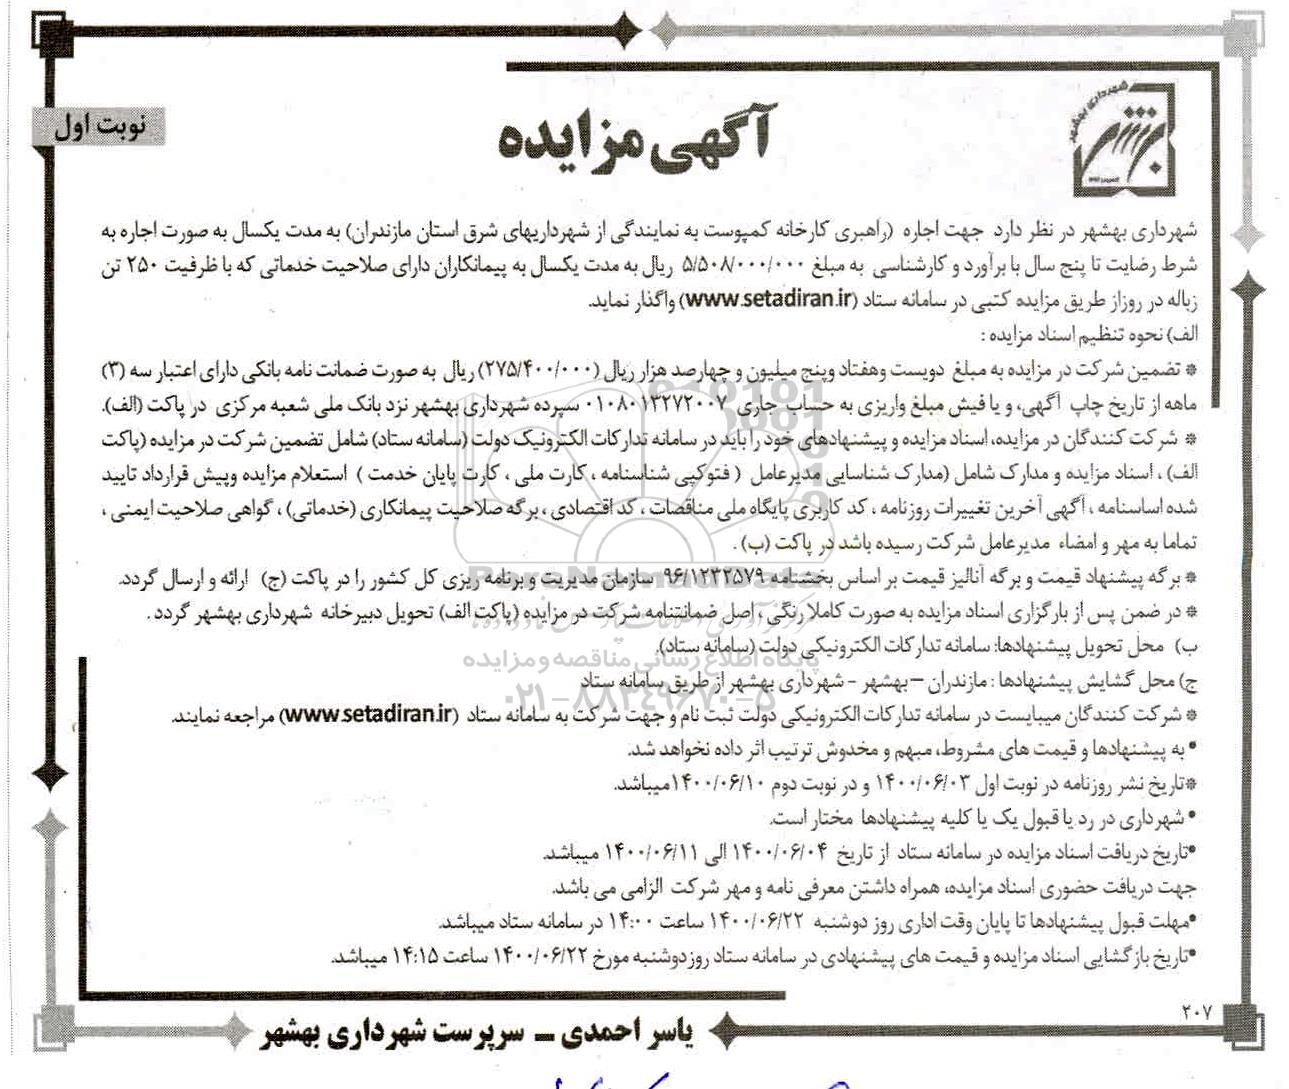 شهرداری بهشهر
بهشهر
نوبت اول
آگهی مزایده
شهرداری بهشهر در نظر دارد جهت اجاره (راهبری کارخانه کمپوست به نمایندگی از شهرداریهای شرق استان مازندران) به مدت یکسال به صورت اجاره به
شرط رضایت تا پنج سال با برآورد و کارشناسی به مبلغ ۵/۵۰۸/۰۰۰/۰۰۰ ریال به مدت یکسال به پیمانکاران دارای صلاحیت خدماتی که با ظرفیت ۲۵۰ تن
زباله در روزاز طریق مزایده کتبی در سامانه ستاد (www.setadiran.ir) واگذار نماید.
الف) نحوه تنظیم اسناد مزایده :
* تضمین شرکت در مزایده به مبلغ دویست وهفتاد وپنج میلیون و چهارصد هزار ریال (۲۷۵/۴۰۰/۰۰۰) ریال به صورت ضمانت نامه بانکی دارای اعتبار سه (۳)
ماهه از تاریخ چاپ آگهی، و یا فیش مبلغ واریزی به حساب جاری ۰۱۰۸۰۱۳۲۷۲۰۰۷ سپرده شهرداری بهشهر نزد بانک ملی شعبه مرکزی در پاکت (الف).
* شرکت کنندگان در مزایده، اسناد مزایده و پیشنهادهای خود را باید در سامانه تدارکات الکترونیک دولت (سامانه ستاد) شامل تضمین شرکت در مزایده (پاکت
الف) ، اسناد مزایده و مدارک شامل (مدارک شناسایی مدیرعامل ( فتوکپی شناسنامه ، کارت ملی ، کارت پایان خدمت ) استعلام مزایده وپیش قرارداد تایید
شده اساسنامه ، آگهی آخرین تغییرات روزنامه ، کد کاربری پایگاه ملی مناقصات ، کد اقتصادی ، برگه صلاحیت پیمانکاری (خدماتی) ، گواهی صلاحیت ایمنی ،
تماما به مهر و امضاء مدیرعامل شرکت رسیده باشد در پاکت (ب) .
* برگه پیشنهاد قیمت و برگه آنالیز قیمت بر اساس بخشنامه ۹۶/۱۲۳۲۵۷۹ سازمان مدیریت و برنامه ریزی کل کشور را در پاکت (ج) ارائه و ارسال گردد.
* در ضمن پس از بارگزاری اسناد مزایده به صورت کاملا رنگی ، اصل ضمانتنامه شرکت در مزایده (پاکت الف) تحویل دبیرخانه شهرداری بهشهر گردد .
ب) محل تحویل پیشنهادها: سامانه تدارکات الکترونیکی دولت (سامانه ستاد).
پایگاه اطلاع رسانی مناقصه و مزایده
ج) محل گشایش پیشنهادها : مازندران – بهشهر - شهرداری بهشهر از طریق سامانه ستاد
۰۲۱-۸۸۳۴۹۶۷۰-۵
* شرکت کنندگان میبایست در سامانه تدارکات الکترونیکی دولت ثبت نام و جهت شرکت به سامانه ستاد (www.setadiran.ir) مراجعه نمایند.
• به پیشنهادها و قیمت های مشروط، مبهم و مخدوش ترتیب اثر داده نخواهد شد.
*تاریخ نشر روزنامه در نوبت اول ۱۴۰۰/۰۶/۰۳ و در نوبت دوم ۱۴۰۰/۰۶/۱۰میباشد.
• شهرداری در رد یا قبول یک یا کلیه پیشنهادها مختار است.
•تاریخ دریافت اسناد مزایده در سامانه ستاد از تاریخ ۱۴۰۰/۰۶/۰۴ الی ۱۴۰۰/۰۶/۱۱ میباشد.
جهت دریافت حضوری اسناد مزایده، همراه داشتن معرفی نامه و مهر شرکت الزامی می باشد.
•مهلت قبول پیشنهادها تا پایان وقت اداری روز دوشنبه ۱۴۰۰/۰۶/۲۲ ساعت ۱۴:۰۰ در سامانه ستاد میباشد.
•تاریخ بازگشایی اسناد مزایده و قیمت های پیشنهادی در سامانه ستاد روزدوشنبه مورخ ۱۴۰۰/۰۶/۲۲ ساعت ۱۴:۱۵ میباشد.
۲۰۷
یاسر احمدی ـ سرپرست شهرداری بهشهر